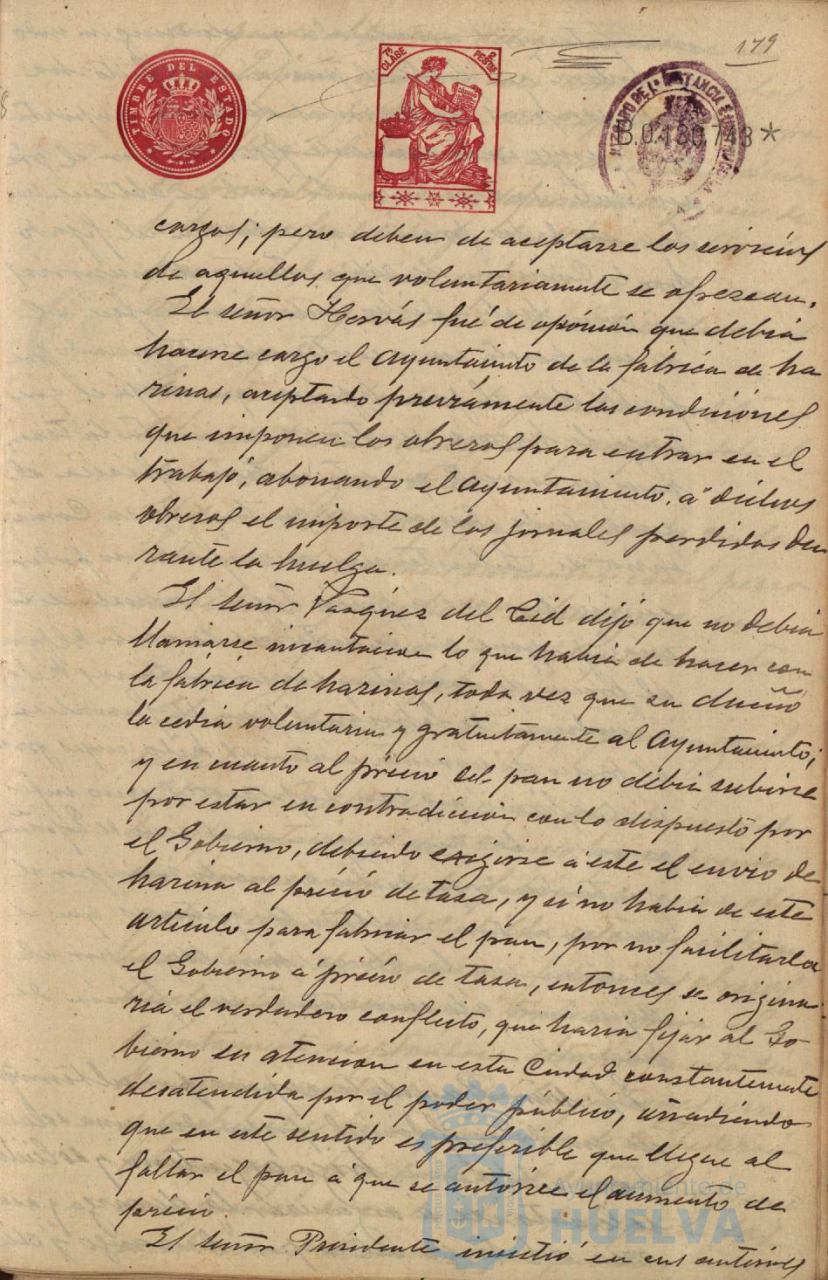 179
TIMBRE DEL ESTADO
7ª CLASE
2 PESETAS
JUZGADO DE 1ª INSTANCIA E
B.0.180.743*
cargos; pero deben de aceptarse los servicios
de aquellos que voluntariamente se ofrezcan.
El señor Hervás fué de opinión que debia
hacerse cargo el Ayuntamiento de la fábrica de ha
rinas, aceptando previamente las condiciones
que imponen los obreros para entrar en el
trabajo, abonando el Ayuntamiento á dichos
obreros el importe de los jornales perdidos du
rante la huelga.
El señor Vazquez del Cid dijo que no debia
llamarse incautacion lo que habia de hacer con
la fábrica de harinas, toda vez que su dueño
la cedia voluntaria y gratuitamente al Ayuntamiento;
y en cuanto al précio del pan no debia subirse
por estar en contradiccion con lo dispuesto por
el Gobierno, debiendo exigirse á este el envio de
harina al précio de tasa, y si no habia de este
artículo para fabricar el pan, por no facilitarlo
el Gobierno á précio de tasa, entonces se origina
ria el verdadero conflicto, que haria fijar al Go
bierno su atencion en esta Ciudad constantemente
desatendida por el poder público, añadiendo
que en este sentido es preferible que llegue al
faltar el pan á que se autorice el aumento de
précio.
El señor Presidente insistió en sus anteriores
Ayuntamiento de
HUELVA